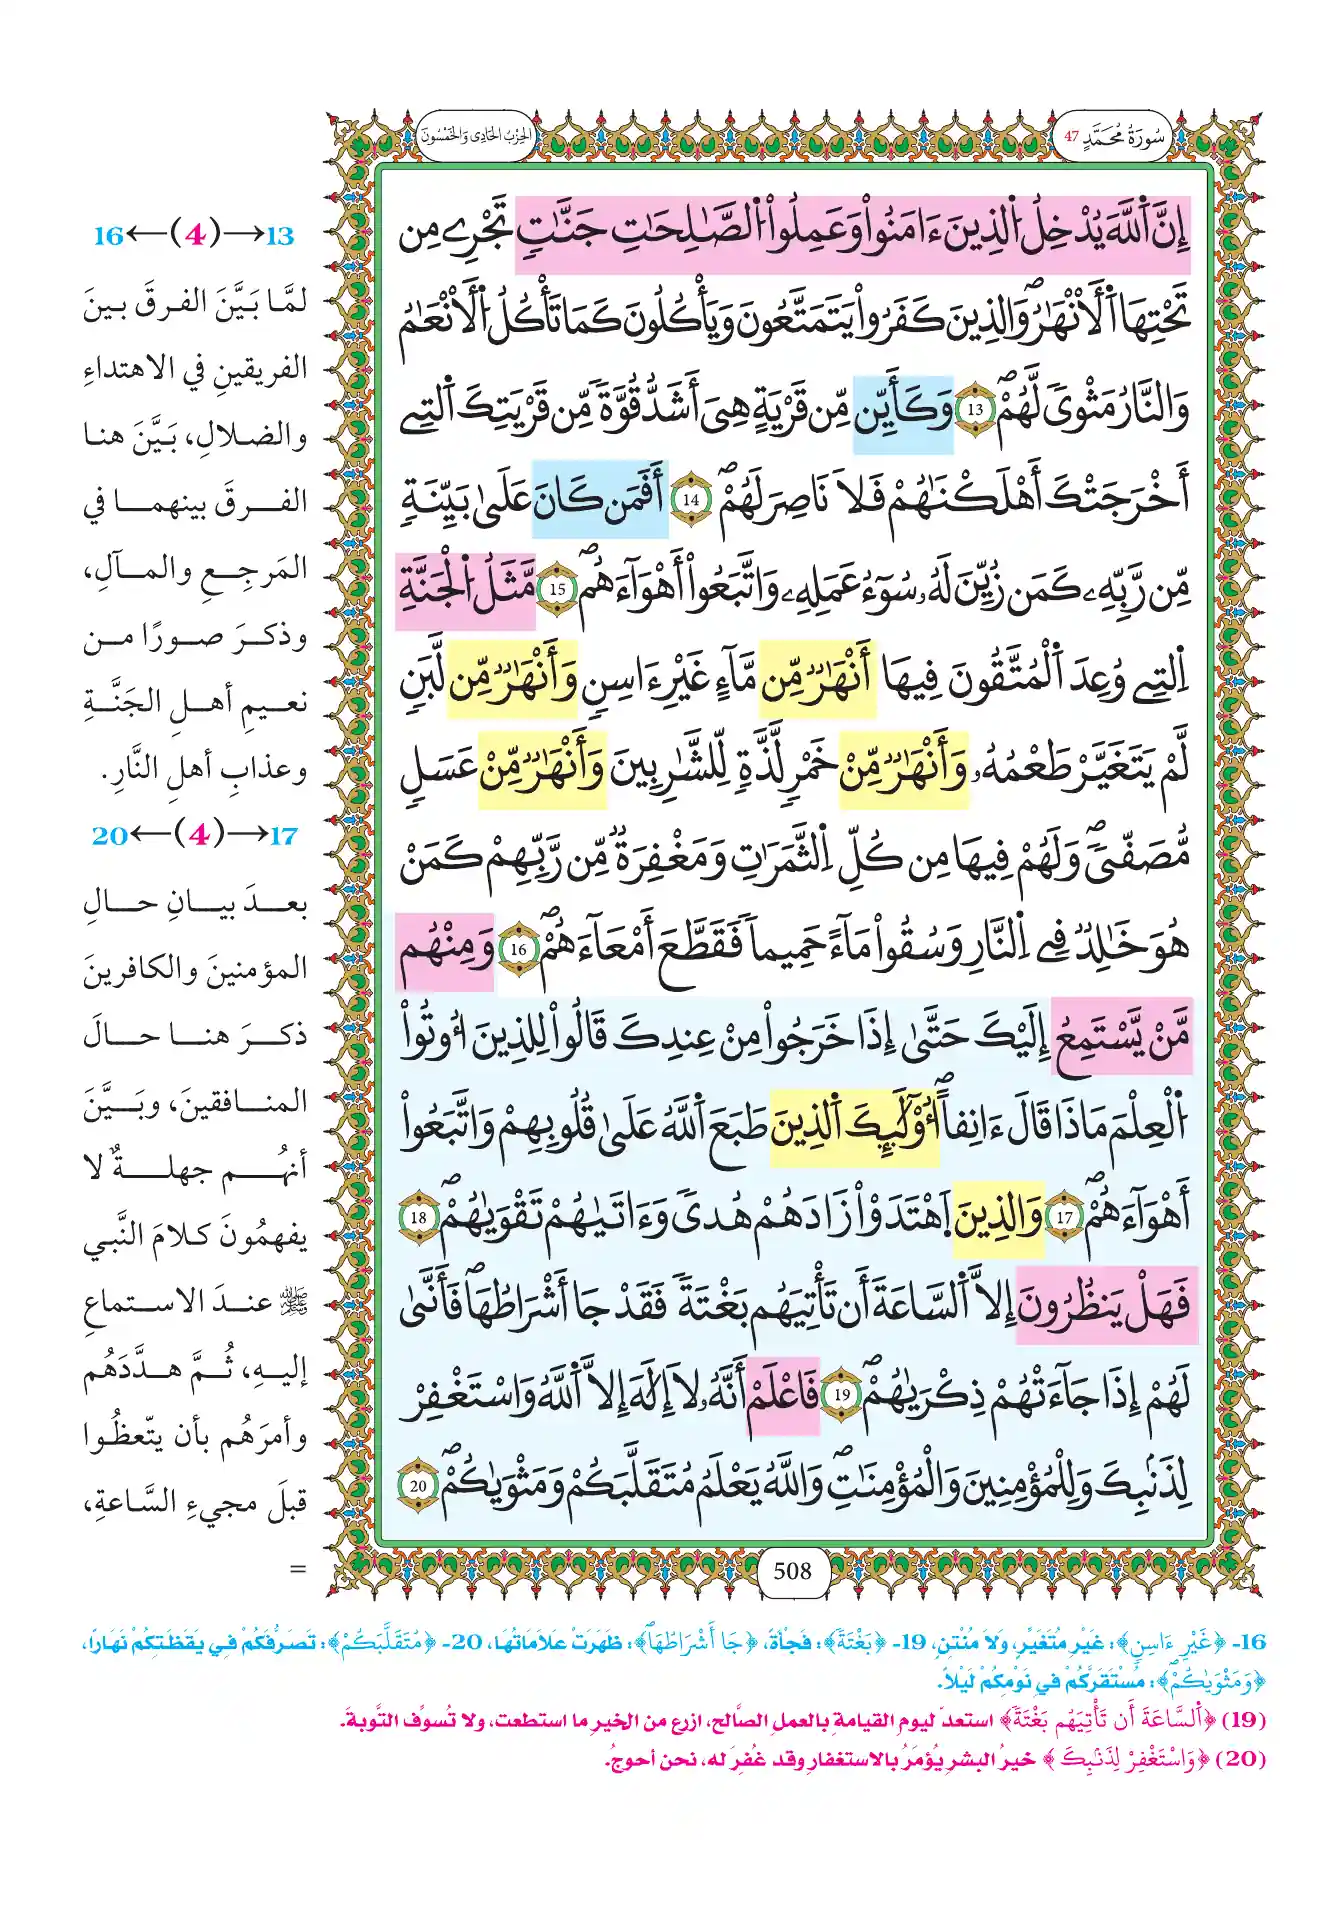 سُورَةُ مُحَمَّدٍ 47
الحِزْبُ الحَادِي وَالخَمْسُونَ
إِنَّ اَ۬للَّهَ يُدْخِلُ اُ۬لذِينَ ءَامَنُواْ وَعَمِلُواْ اُ۬لصَّٰلِحَٰتِ جَنَّٰتٖ تَجْرِے مِن
تَحْتِهَا اَ۬لَانْهَٰرُۖ وَالذِينَ كَفَرُواْ يَتَمَتَّعُونَ وَيَأْكُلُونَ كَمَا تَأْكُلُ اُ۬لَانْعَٰمُ
وَالنَّارُ مَثْويٗ لَّهُمْۖ 13 وَكَأَيِّن مِّن قَرْيَةٍ هِيَ أَشَدُّ قُوَّةٗ مِّن قَرْيَتِكَ اَ۬لتِےٓ
أَخْرَجَتْكَ أَهْلَكْنَٰهُمْ فَلَا نَاصِرَ لَهُمْۖ 14 أَفَمَن كَانَ عَلَىٰ بَيِّنَةٖ
مِّن رَّبِّهِۦ كَمَن زُيِّنَ لَهُۥ سُوٓءُ عَمَلِهِۦ وَاتَّبَعُوٓاْ أَهْوَآءَهُمۖ 15 مَّثَلُ اُ۬لْجَنَّةِ
اِ۬لتِے وُعِدَ اَ۬لْمُتَّقُونَ فِيهَآ أَنْهَٰرٞ مِّن مَّآءٍ غَيْرِ ءَاسِنٖ وَأَنْهَٰرٞ مِّن لَّبَنٖ
لَّمْ يَتَغَيَّرْ طَعْمُهُۥ وَأَنْهَٰرٞ مِّنْ خَمْرٖ لَّذَّةٖ لِّلشَّٰرِبِينَ وَأَنْهَٰرٞ مِّنْ عَسَلٖ
مُّصَفّيٗۖ وَلَهُمْ فِيهَا مِن كُلِّ اِ۬لثَّمَرَٰتِ وَمَغْفِرَةٞ مِّن رَّبِّهِمْ كَمَنْ
هُوَ خَٰلِدٞ فِے اِ۬لنَّارِ وَسُقُواْ مَآءً حَمِيماٗ فَقَطَّعَ أَمْعَآءَهُمْۖ 16 وَمِنْهُم
مَّنْ يَّسْتَمِعُ إِلَيْكَ حَتَّىٰٓ إِذَا خَرَجُواْ مِنْ عِندِكَ قَالُواْ لِلذِينَ أُوتُواْ
اُ۬لْعِلْمَ مَاذَا قَالَ ءَانِفاًۖ اُ۟وْلَٰٓئِكَ اَ۬لذِينَ طَبَعَ اَ۬للَّهُ عَلَىٰ قُلُوبِهِمْ وَاتَّبَعُوٓاْ
أَهْوَآءَهُمْۖ 17 وَالذِينَ اَ۪هْتَدَوْاْ زَادَهُمْ هُديٗ وَءَاتَيٰهُمْ تَقْوَيٰهُمْۖ 18
فَهَلْ يَنظُرُونَ إِلَّا اَ۬لسَّاعَةَ أَن تَأْتِيَهُم بَغْتَةٗ فَقَدْ جَا أَشْرَاطُهَاۖ فَأَنَّىٰ
لَهُمْ إِذَا جَآءَتْهُمْ ذِكْرَيٰهُمْۖ 19 فَاعْلَمْ أَنَّهُۥ لَآ إِلَٰهَ إِلَّا اَ۬للَّهُ وَاسْتَغْفِرْ
لِذَنۢبِكَ وَلِلْمُؤْمِنِينَ وَالْمُؤْمِنَٰتِۖ وَاللَّهُ يَعْلَمُ مُتَقَلَّبَكُمْ وَمَثْوَيٰكُمْۖ 20
508
13→(4)←16
لمَّا بَيَّنَ الفرقَ بينَ
الفريقينِ في الاهتداءِ
والضلالِ، بَيَّنَ هنا
الفرقَ بينهما في
المَرجِعِ والمآلِ،
وذكرَ صورًا من
نعيمِ أهلِ الجَنَّةِ
وعذابِ أهلِ النَّارِ.
17→(4)←20
بعدَ بيانِ حالِ
المؤمنينَ والكافرينَ
ذكرَ هنا حالَ
المنافقينَ، وبَيَّنَ
أنهُم جهلةٌ لا
يفهمُونَ كلامَ النَّبي
ﷺ عندَ الاستماعِ
إليهِ، ثُمَّ هدَّدَهُم
وأمرَهُم بأن يتّعظُوا
قبلَ مجيءِ السَّاعةِ،
=
16- ﴿غَيْرِ ءَاسِنٖ﴾: غَيْرِ مُتَغَيِّرٍ، وَلَا مُنْتِنٍ، 19- ﴿بَغْتَةٗ﴾: فَجْأَةً، ﴿جَا أَشْرَاطُهَاۖ﴾: ظَهَرَتْ عَلَامَاتُهَا، 20- ﴿مُتَقَلَّبَكُمْ﴾: تَصَرُّفَكُمْ فِي يَقَظَتِكُمْ نَهَارًا،
﴿وَمَثْوَيٰكُمْۖ﴾: مُسْتَقَرَّكُمْ فِي نَوْمِكُمْ لَيْلًا.
(19) ﴿اَ۬لسَّاعَةَ أَن تَأْتِيَهُم بَغْتَةٗ﴾ استعدّ ليوم القيامة بالعمل الصَّالح، ازرع من الخير ما استطعت، ولا تُسوِّف التَّوبة.
(20) ﴿وَاسْتَغْفِرْ لِذَنۢبِكَ﴾ خيرُ البشرِ يُؤمَرُ بالاستغفارِ وقد غُفِرَ له، نحن أحوجُ.